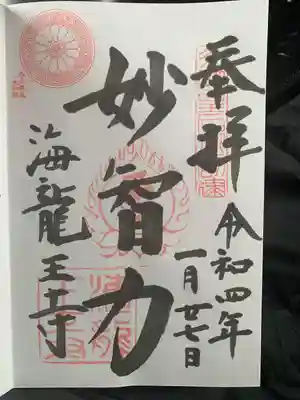 奉拝
令和四年
一月廿七日
妙智力
海龍王寺